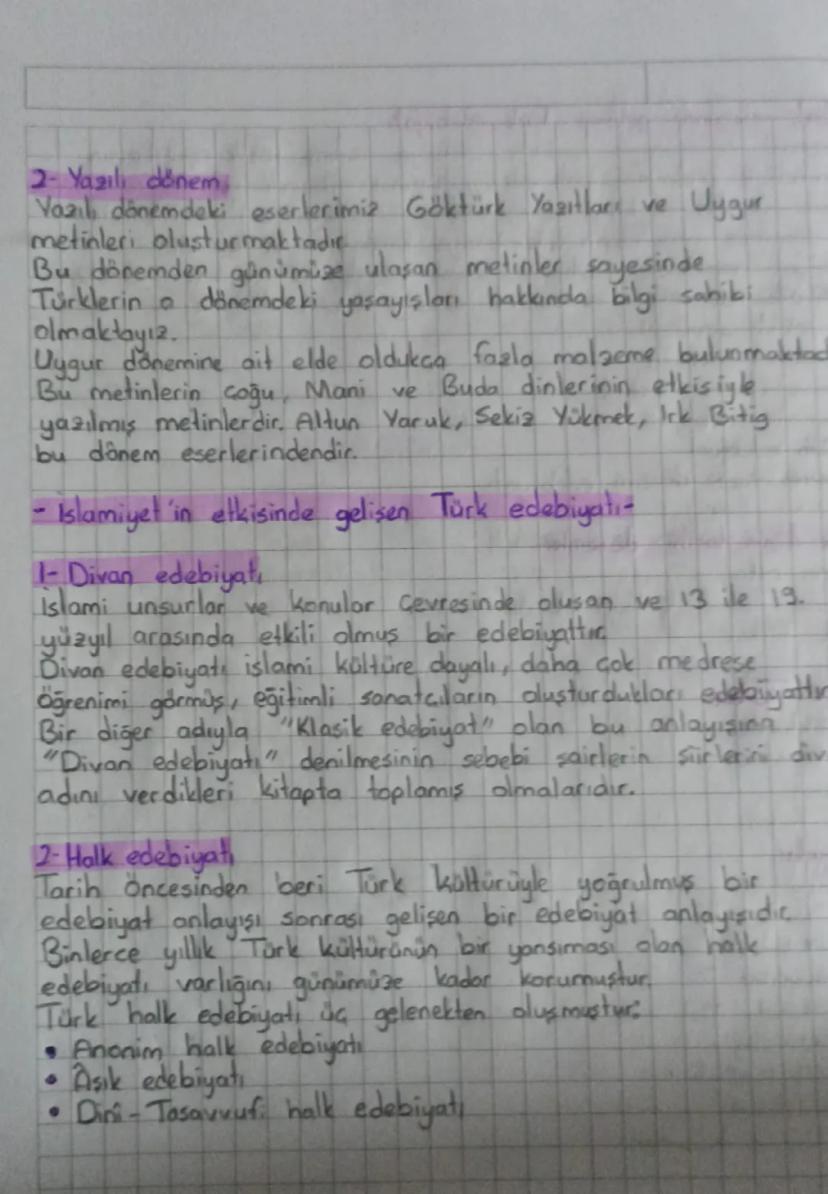 2- Yazılı dönem
Yazılı dönemdeki eserlerimiz Göktürk Yazıtları ve Uygur
metinleri oluşturmaktadır.
Bu dönemden günümüze ulaşan metinler sayesinde
Türklerin o dönemdeki yaşayışları hakkında bilgi sahibi
olmaktayız.
Uygur dönemine ait elde oldukca fazla malzeme bulunmaktad
Bu metinlerin coğu, Mani ve Buda dinlerinin etkisiyle
yazılmış metinlerdir. Altun Yaruk, Sekiz Yükmek, Irk Bitig
bu dönem eserlerindendir.
- İslamiyet'in etkisinde gelişen Türk edebiyatı-
1- Divan edebiyatı
İslami unsurlar ve konular cevresinde oluşan ve 13 ile 19.
yüzyıl arasında etkili olmuş bir edebiyattır.
Divan edebiyatı islami kültüre dayalı, daha cok medrese
öğrenimi görmüş, eğitimli sanatcıların oluşturdukları edebiyattır
Bir diğer adıyla "Klasik edebiyat" olan bu anlayışına
"Divan edebiyatı" denilmesinin sebebi şairlerin şiirlerini div
adını verdikleri kitapta toplamış olmalarıdır.
2- Halk edebiyatı
Tarih öncesinden beri Türk kültürüyle yoğrulmuş bir
edebiyat anlayışı sonrası gelişen bir edebiyat anlayışıdır.
Binlerce yıllık Türk kültürünün bir yansıması olan halk
edebiyatı varlığını günümüze kadar korumuştur.
Türk halk edebiyatı üç gelenekten oluşmuştur:
• Anonim halk edebiyatı
• Aşık edebiyatı
• Dini-Tasavvufi halk edebiyatı